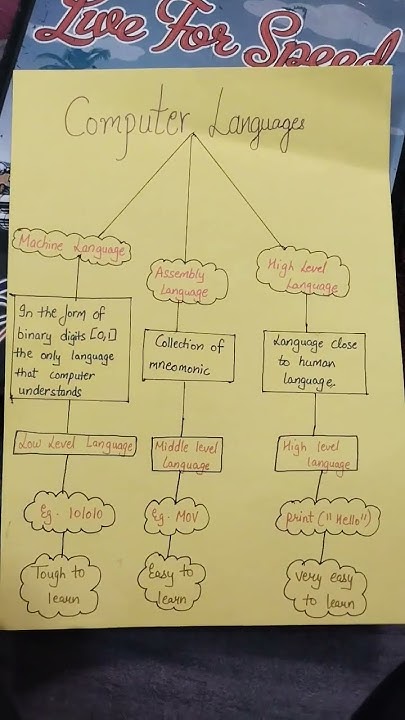 Live For Speed
Computer Languages
Machine Language
In the form of
binary digits [0,1]
the only language
that computer
understands
Low Level Language
Eg. 101010
Tough to
learn
Assembly
Language
Collection of
mneomonic
Middle level
Language
Eg. MOV
Easy to
learn
High Level
Language
Language close
to human
language.
High level
language
print("Hello")
very easy
to learn